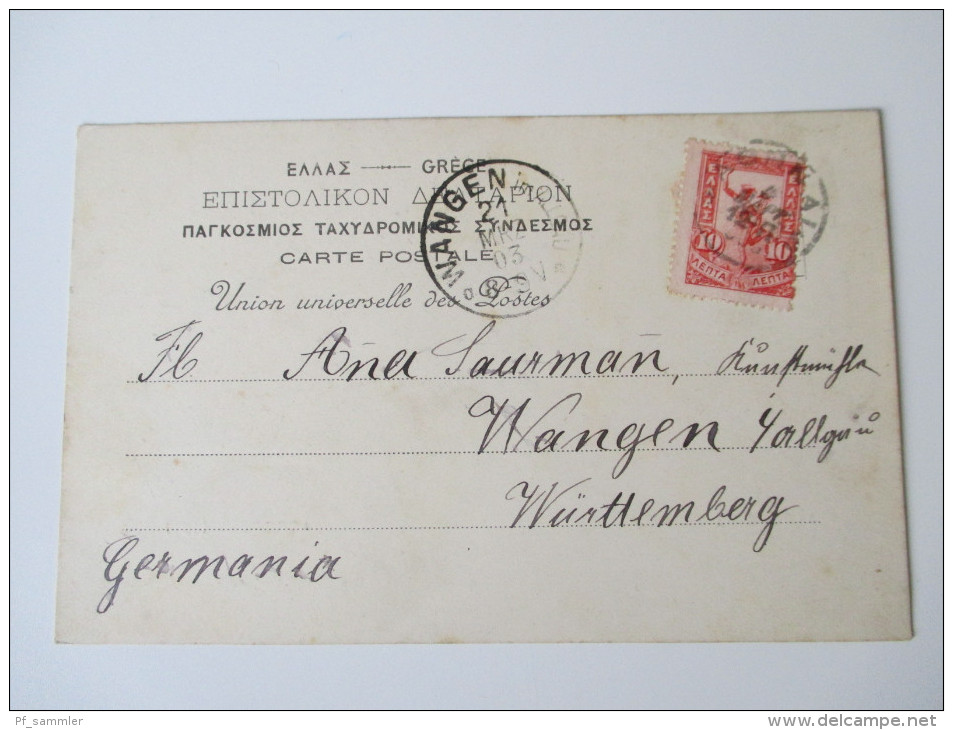 ΕΛΛΑΣ — GRÈCE
ΕΠΙΣΤΟΛΙΚΟΝ ΔΕΛΤΑΡΙΟΝ
ΠΑΓΚΟΣΜΙΟΣ ΤΑΧΥΔΡΟΜΙΚΟΣ ΣΥΝΔΕΣΜΟΣ
CARTE POSTALE
Union universelle des Postes
WANGEN
21
MRZ
03
ΕΛΛΑΣ ΕΛΛΑΣ
10 10
ΛΕΠΤΑ ΛΕΠΤΑ
Fl Aña Saurmañ, Kunstmühle
Wangen i/allgäu
Württemberg
Germania
Pf_sammler
http://www.delcampe.net